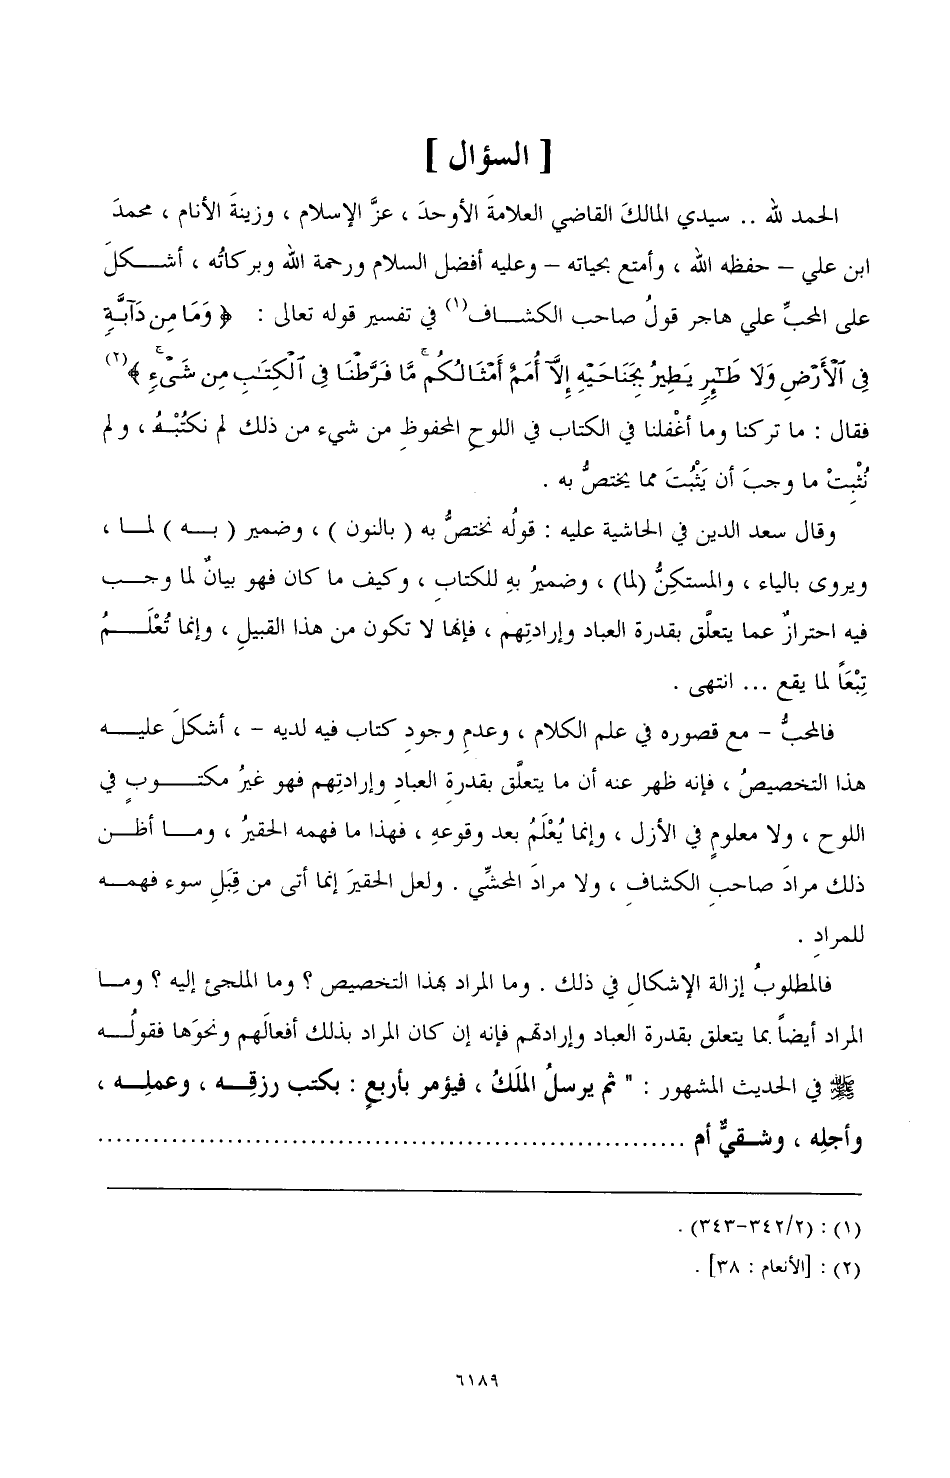 [ السؤال ]
الحمد لله .. سيدي المالكَ القاضي العلامةَ الأوحدَ ، عزَّ الإسلام ، وزينةَ الأنام ، محمدَ
ابن علي – حفظه الله ، وأمتع بحياته – وعليه أفضل السلام ورحمة الله وبركاتُه ، أشكلَ
على المحبِّ علي هاجر قولُ صاحب الكشاف(١) في تفسير قوله تعالى : ﴿ وَمَا مِن دَآبَّةٍ
فِى ٱلْأَرْضِ وَلَا طَـٰٓئِرٍ يَطِيرُ بِجَنَاحَيْهِ إِلَّآ أُمَمٌ أَمْثَالُكُم ۚ مَّا فَرَّطْنَا فِى ٱلْكِتَـٰبِ مِن شَىْءٍ ۚ ﴾(٢)
فقال : ما تركنا وما أغْفلنا في الكتاب في اللوحِ المحفوظِ من شيء من ذلك لم نكتُبْهُ ، ولم
نُثْبِتْ ما وجبَ أن يَثْبُتَ مما يختصُّ به .
وقال سعد الدين في الحاشية عليه : قولُه نختصُّ به ( بالنون ) ، وضمير ( به ) لما ،
ويروى بالياء ، والمستكِنُّ (لما) ، وضميرُ بهِ للكتابِ ، وكيف ما كان فهو بيانٌ لما وجب
فيه احترازٌ عما يتعلَّق بقدرة العباد وإرادتِهم ، فإنها لا تكون من هذا القبيلِ ، وإنما تُعْلَمُ
تِبْعَاً لما يقع ... انتهى .
فالمحبُّ – مع قصوره في علم الكلام ، وعدمِ وجودِ كتاب فيه لديه – ، أشكلَ عليه
هذا التخصيصُ ، فإنه ظهر عنه أن ما يتعلَّق بقدرةِ العبادِ وإرادتِهم فهو غيرُ مكتوبٍ في
اللوح ، ولا معلومٍ في الأزل ، وإنما يُعْلَمُ بعد وقوعهِ ، فهذا ما فهمه الحقيرُ ، وما أظن
ذلك مرادَ صاحبِ الكشافِ ، ولا مرادَ المحشِّي . ولعل الحقيرَ إنما أتى من قِبَلِ سوء فهمه
للمرادِ .
فالمطلوبُ إزالة الإشكالِ في ذلك . وما المراد بهذا التخصيص ؟ وما الملجئ إليه ؟ وما
المراد أيضاً بما يتعلق بقدرة العباد وإرادتهم فإنه إن كان المراد بذلك أفعالَهم ونحوَها فقولُه
ﷺ في الحديث المشهور : " ثم يرسلُ المَلَكُ ، فيؤمر بأربعٍ : بكتب رزقِه ، وعملِه ،
وأجلِه ، وشقيٌّ أم ................................................................
(١) : (٢/٣٤٢-٣٤٣) .
(٢) : [الأنعام : ٣٨] .
٦١٨٩